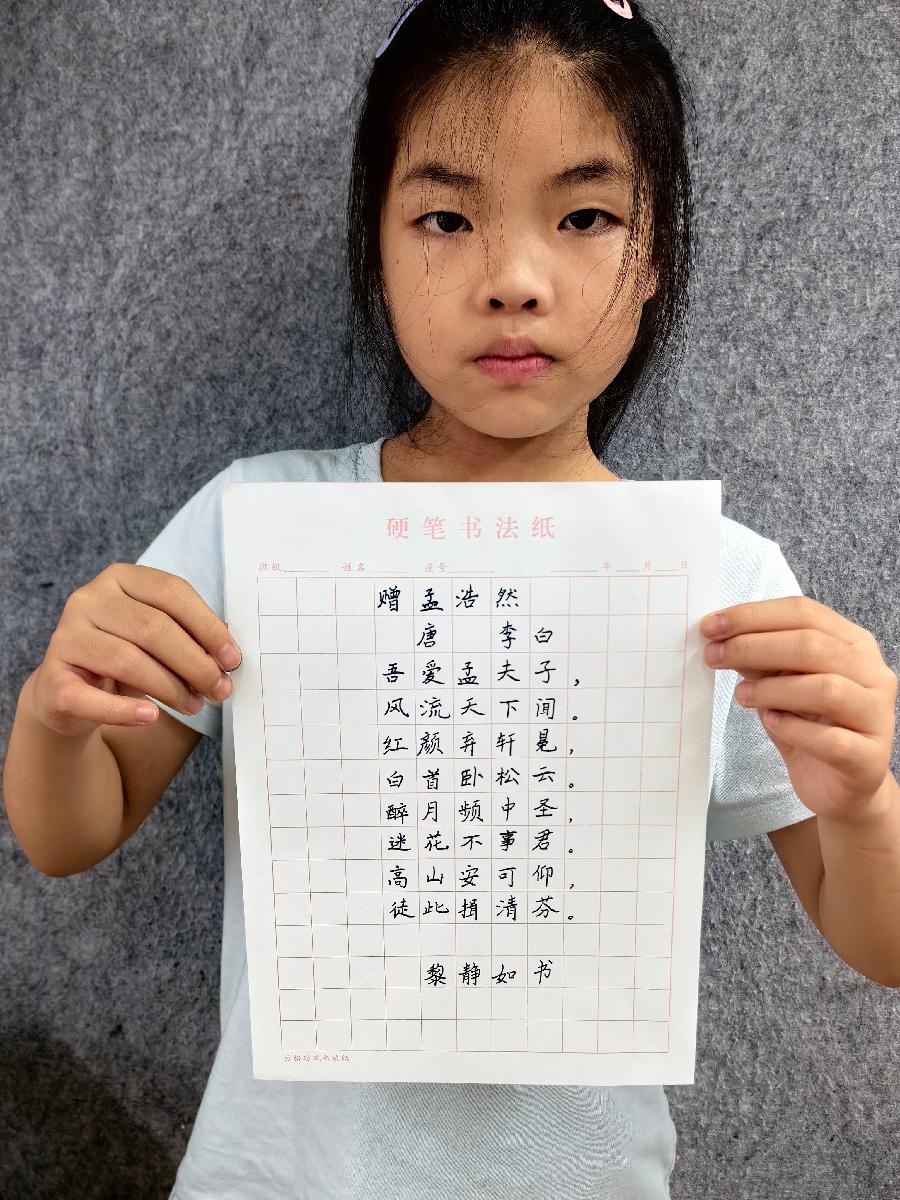 硬笔书法纸
班级 姓名 座号 年 月 日
赠孟浩然
唐 李白
吾爱孟夫子，
风流天下闻。
红颜弃轩冕，
白首卧松云。
醉月频中圣，
迷花不事君。
高山安可仰，
徒此揖清芬。
黎静如书